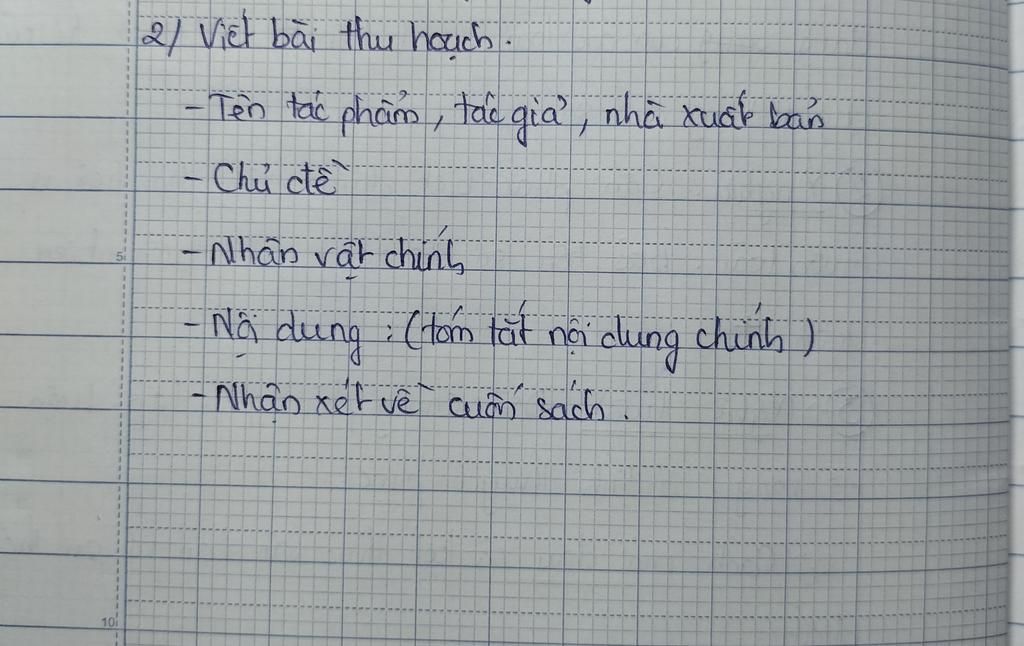 2/ Viết bài thu hoạch.
- Tên tác phẩm, tác giả, nhà xuất bản
- Chủ đề
- Nhân vật chính
- Nội dung : (tóm tắt nội dung chính)
- Nhận xét về cuốn sách.
5
10